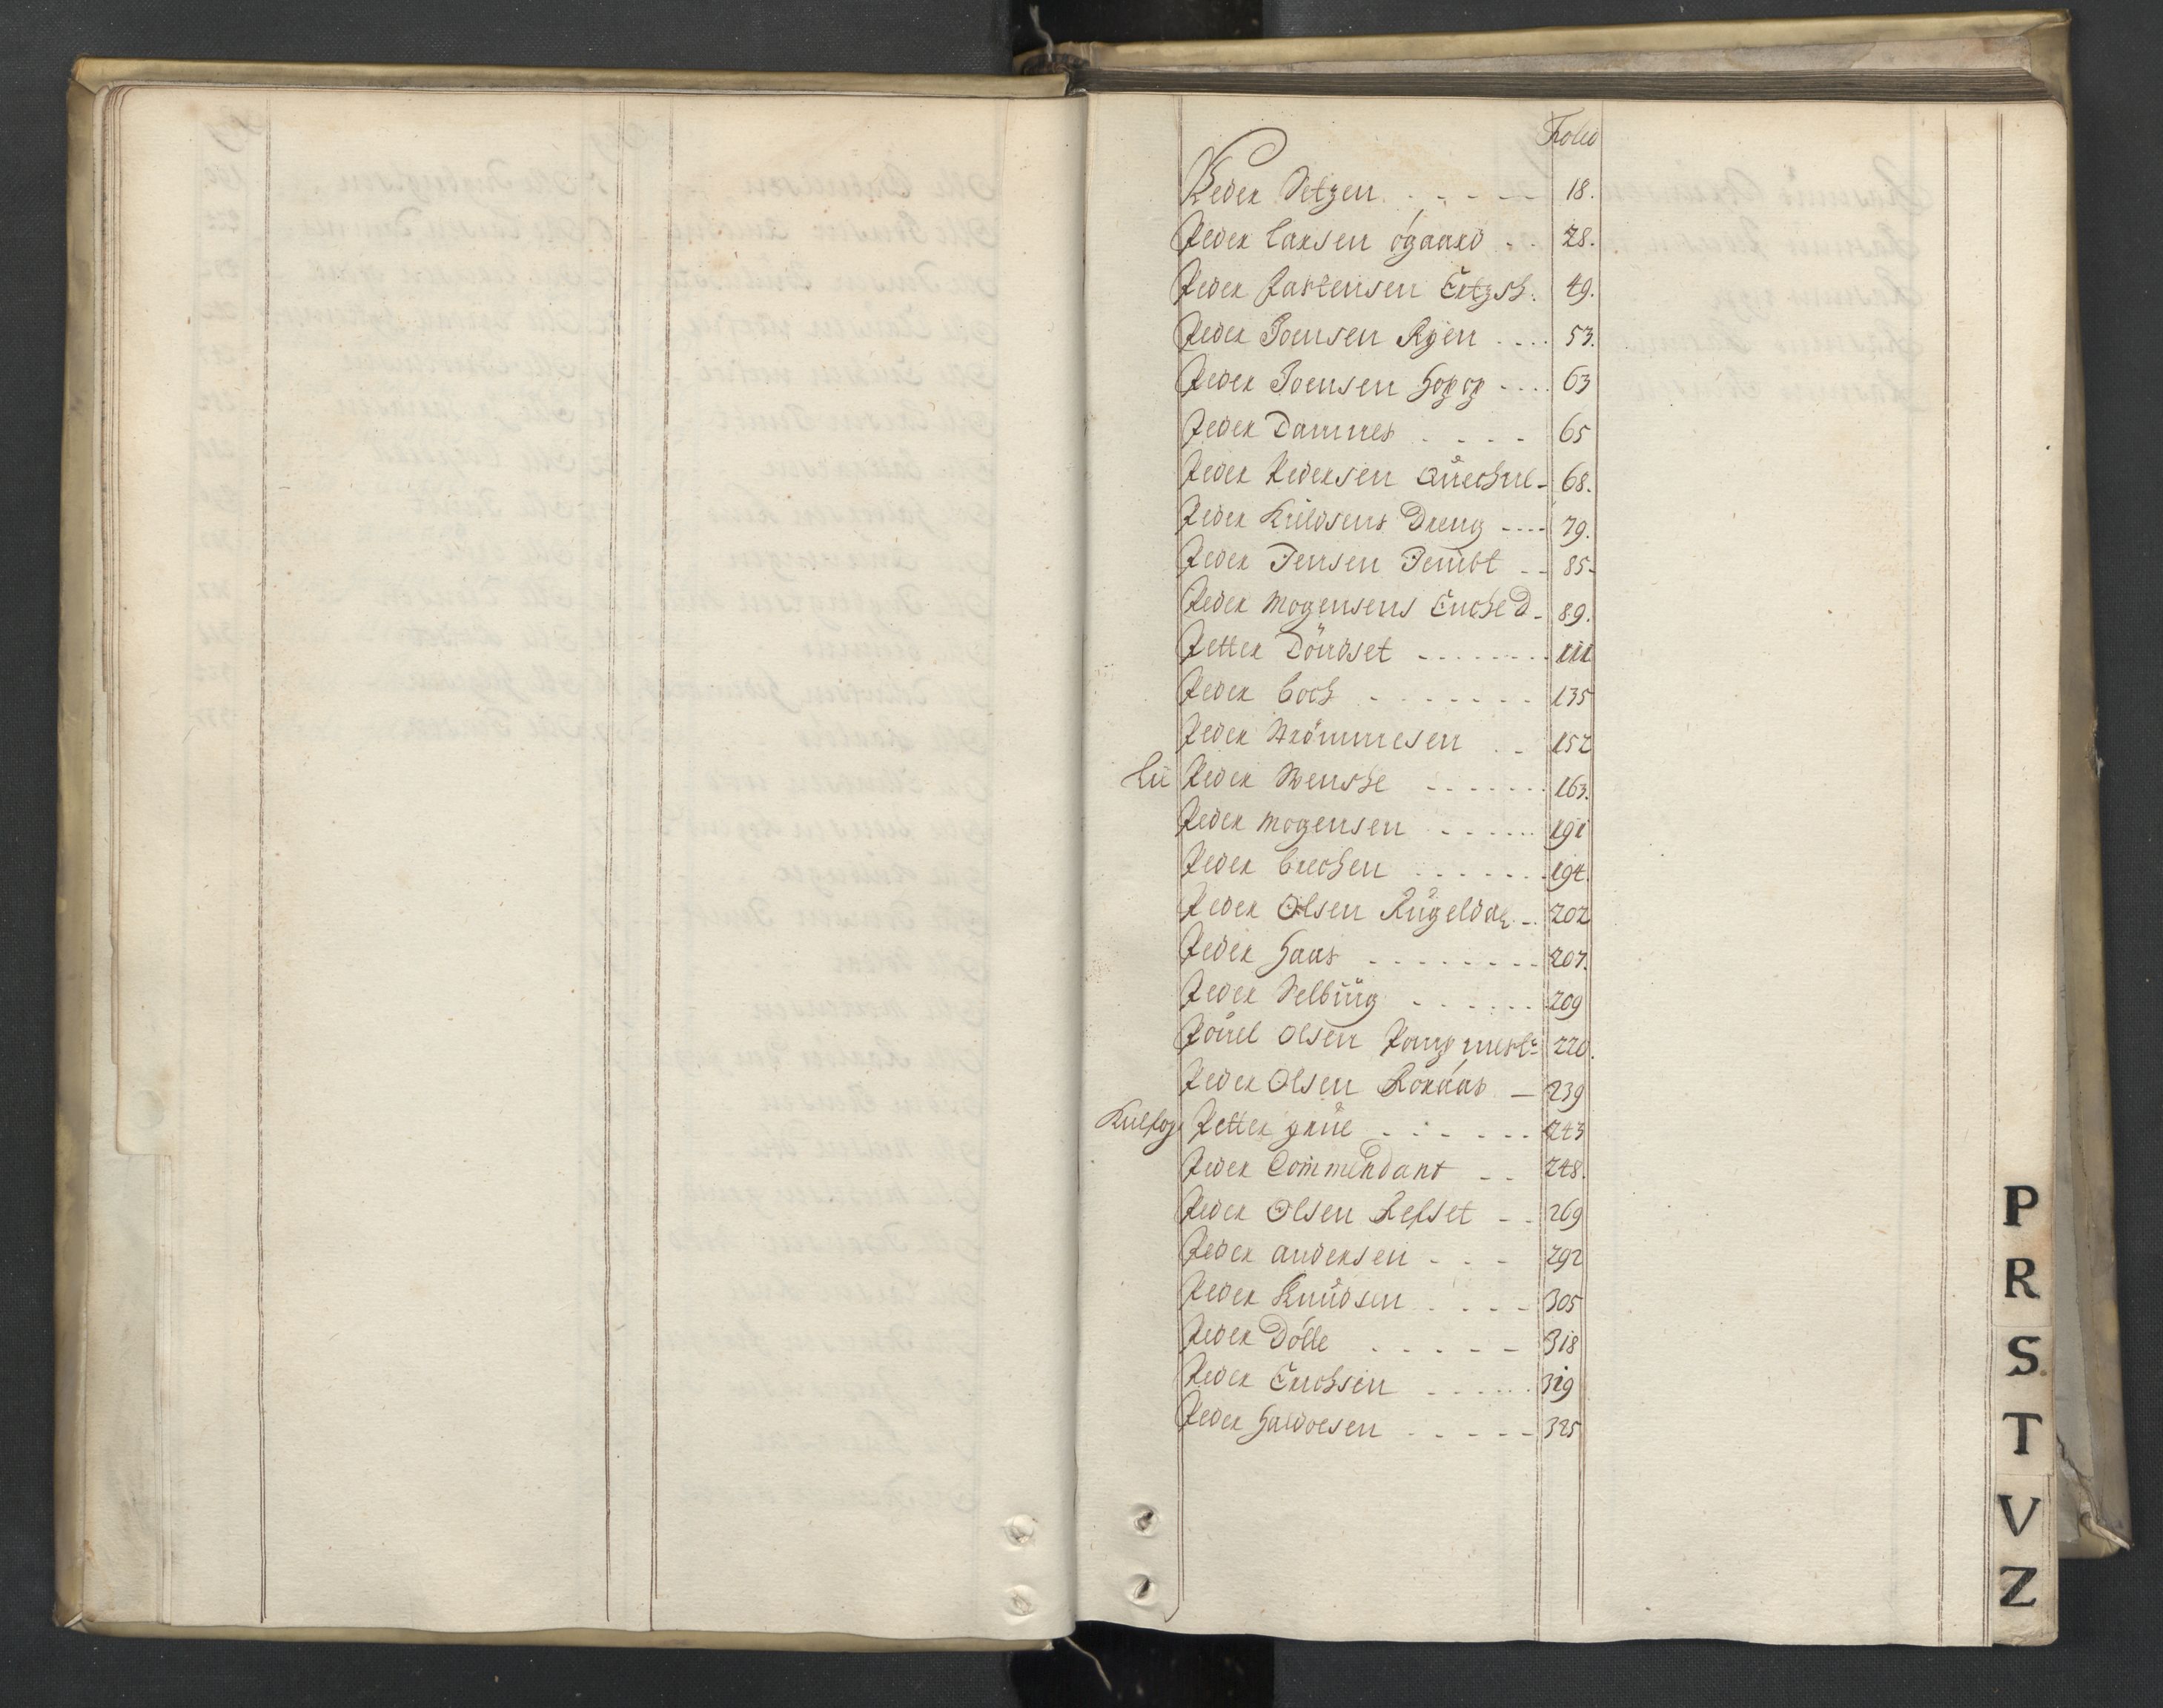 Folio
Peder Setzen 18.
Peder Larsen Ógaard 28.
Peder Joensen Ryen 53.
Peder Joensen Hopp 63
Peder Dammes 65
Peder Pedersen 68.
Peder Dreng 79.
Peder Jensen Jembt 85.
Peder Mogensens 89.
Petter Dönset 111
Peder Coch 135
Peder Strömmesen 152
Lil Peder Svenske 163.
Peder Mogensen 191
Peder Brechen 194.
Peder Olsen Rugeldal 202
Peder Haas 207.
Peder Selbüg 209
Pouel Olsen 220.
Peder Olsen Roraas 239
Kulfog Petter grue 243
Peder Commendant 248.
Peder Olsen Refset 269
Peder Andersen 292
Peder Knudsen 305
Peder Dölle 318
Peder Erichsen 319
Peder Haldorsen 325
P
R
S
T
V
Z